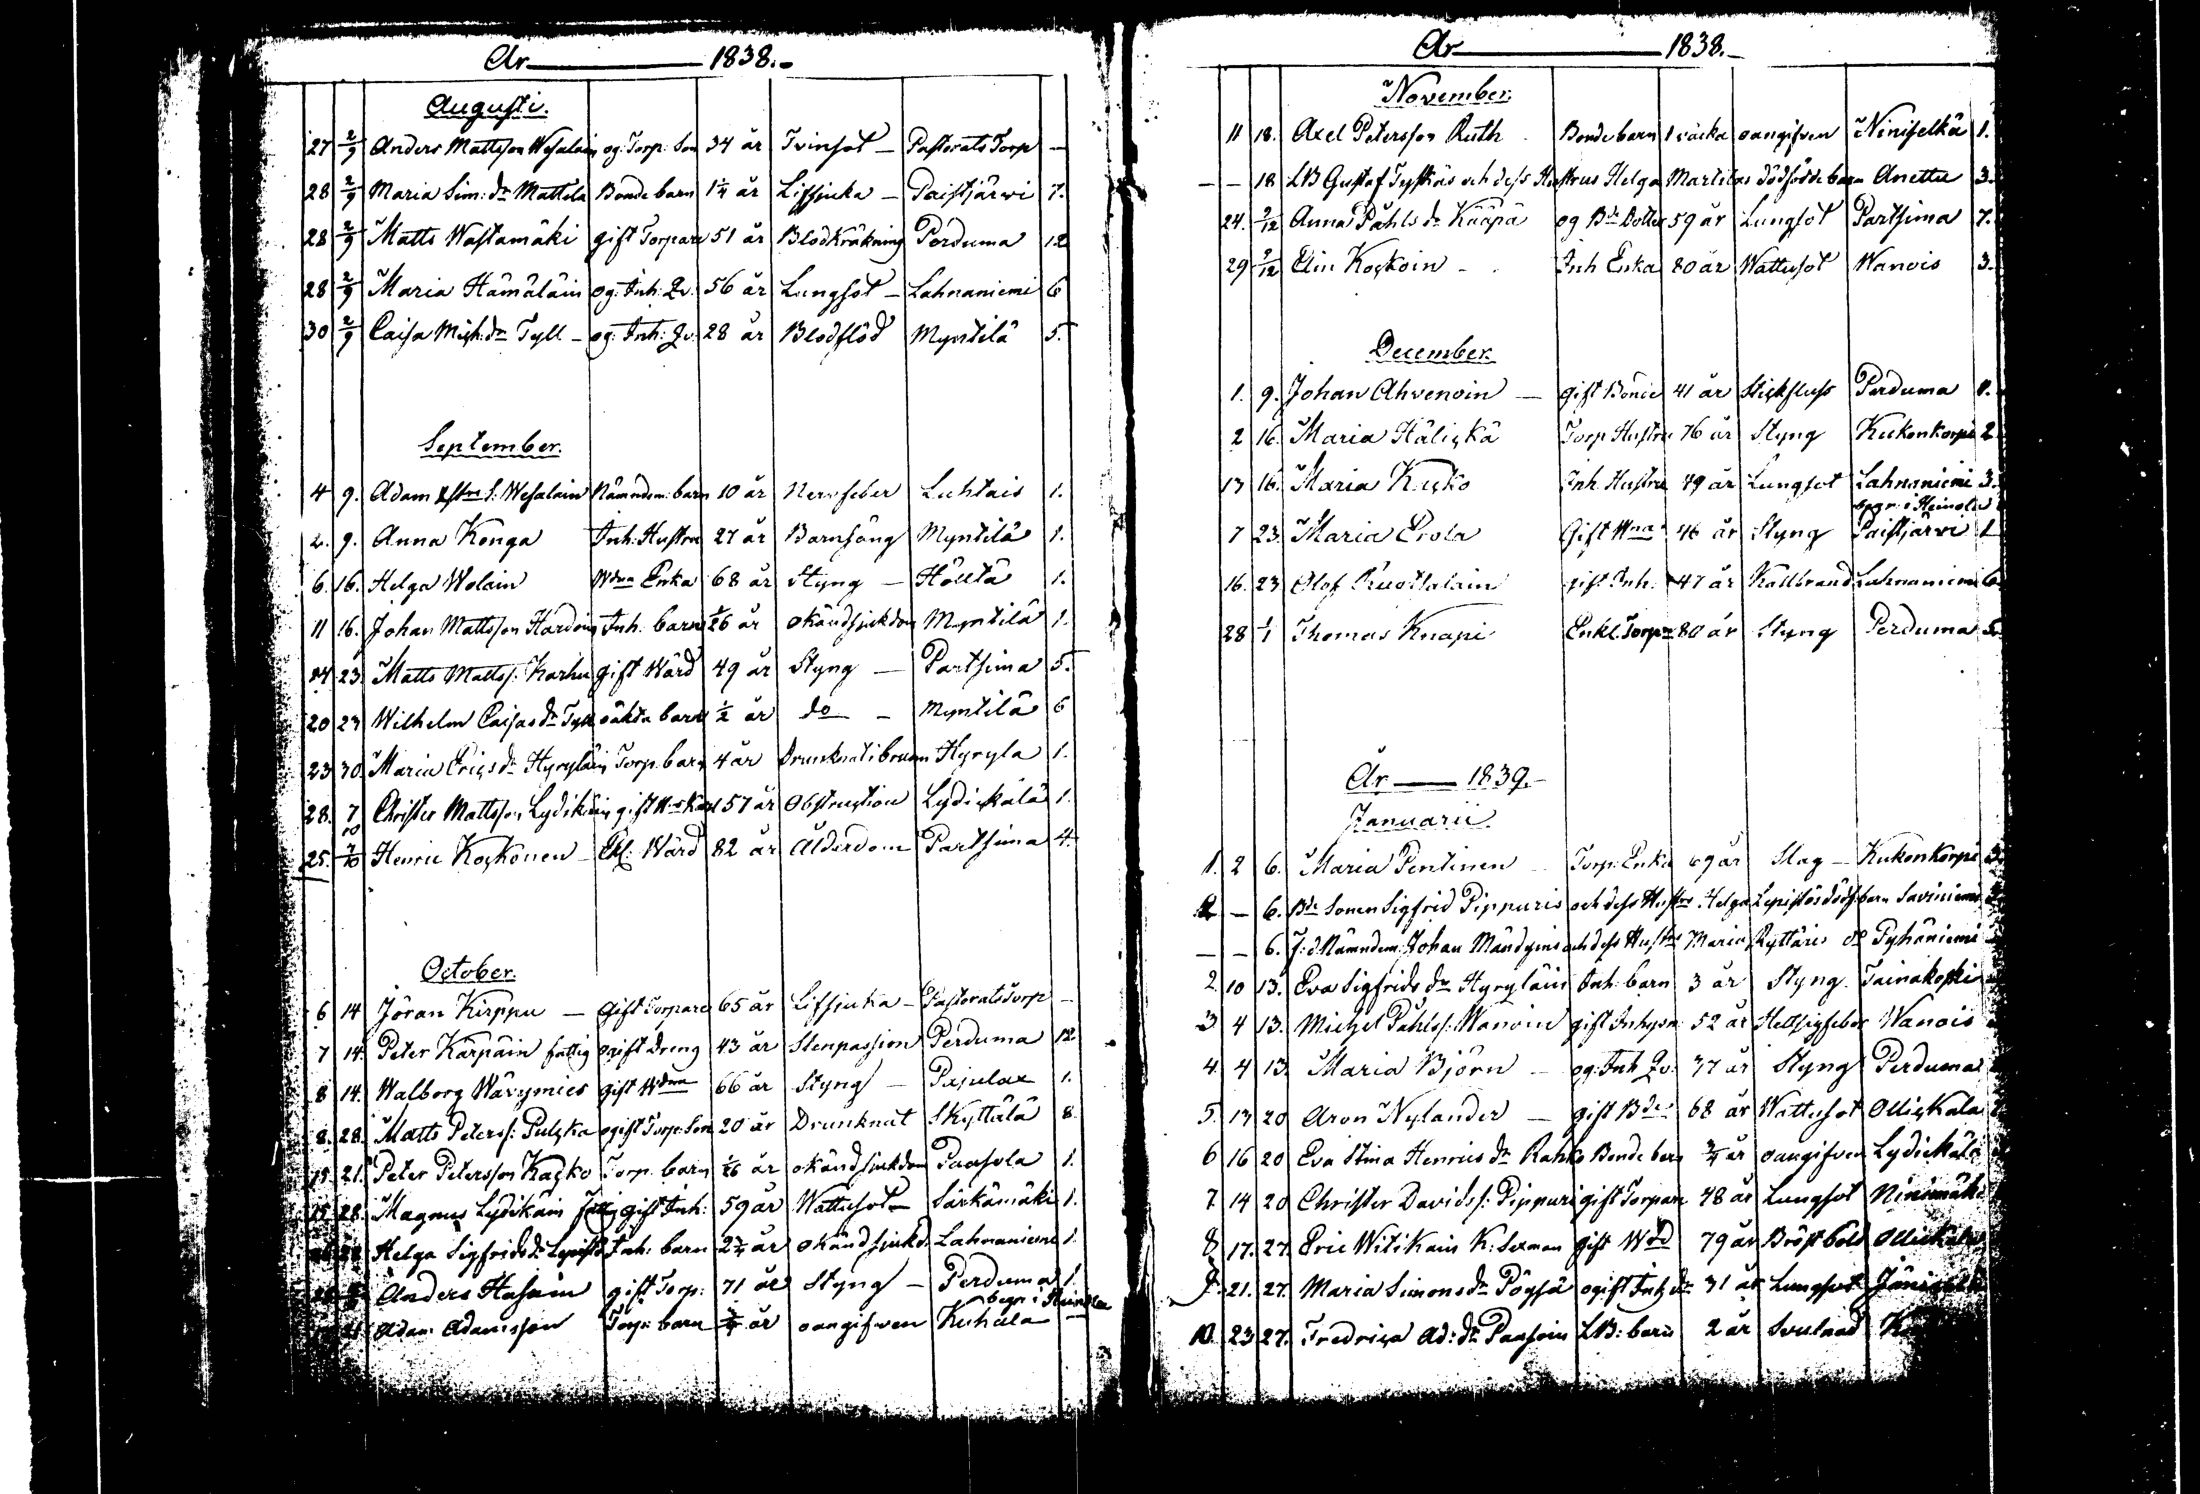 År 1838.
Augusti.
27 2/9 Anders Mattsson Wesalain og: Torp. Son 34 år Tvinsot Pastorats Torp
28 2/9 Maria Sim: dr Mattila Bonde barn 1 1/4 år Lifsjuka Paistjärwi 7.
28 2/9 Matts Wastamäki gift Torpare 51 år Blodkräkning Perduma 12
28 2/9 Maria Hämäläin og: Inh: Qv: 56 år Lungsot Lahnaniemi 6
30 2/9 Caisa Mich: dr Tyll og: Inh: Qv: 28 år Blodflöd Myntilä 5.
September.
4 9. Adam s: Wesalain Nämndem: barn 10 år Nervfeber Luhtais 1.
2. 9. Anna Konga Inh: Hustru 27 år Barnsäng Myntilä 1.
6. 16. Helga Wolain Wdna Enka 68 år Styng Höltä 1.
11 16. Johan Mattsson Inh. barn 1/26 år okänd sjukdom Myntilä 1.
14 23. Matts Mattss: Karhu gift Wärd 49 år Styng Partsima 5.
20 23 Wilhelm Caisas dr Tyll oäkta barn 1/2 år do Myntilä 6
23 30. Maria Erics dr Hyryläin Torp. barn 4 år Drunknat i brunn Hyryla 1.
28. 7/10 Christer Mattsson Lydikäin gift 57 år Obstruction Lydickälä 1.
25. 7/10 Henric Kockonen Ekl: Wärd 82 år Ålderdom Partsima 4.
October.
6 14 Jöran Kirppu Gift Torpare 65 år Lifsjuka Pastorats Torp
7 14. Peter Kärpäin fattig ogift Dreng 43 år Stenpassion Perduma 12.
8 14. Walborg Wävymies gift Wdna 66 år Styng Pajulax 1.
8. 28. Matts Peterss: Pulcka ogift Torp: Son 20 år Drunknat Skyttälä 8.
15 21. Peter Petersson Kacko Torp. barn 1/26 år okänd sjukdom Paasola 1.
15 28. Magnus Lydikäin gift Inh: 59 år Wattusot Särkämäki 1.
28 Helga Sigfrids dr Inh: barn 2 3/4 år okänd sjukd. Lahnaniemi 1.
Anders Hasain gift Torp: 71 år Styng Perduma 1.
begr: i
Adam Adamsson Torp: barn år oangifwen Kuhala
År 1838.
November.
11 18. Axel Petersson Ruth Bonde barn 1 väcka oangifven Niniselkä 1.
18 LB Gustaf Tyskäs och dess Hustrus Helga Martitas dödfödde barn Anettu 3.
24. 2/12 Anna Påhls dr Kääpä og Bde Dotter 59 år Lungsot Partsima 7.
29 2/12 Elin Kockoin Inh Enka 80 år Wattusot Wanois 3.
December.
1. 9. Johan Ahvenoin gift Bonde 41 år Stickfluss Perduma 1.
2 16. Maria Hälickä Torp Hustru 76 år Styng Kukonkorpi 2
13 16. Maria Kucko Inh Hustru 49 år Lungsot Lahnaniemi 3.
begr: i Heinola
7 23. Maria Erola Gift Wna 46 år Styng Paistjärwi 1
16. 23 Olof Ruottalain gift Inh. 47 år Kallbrand Lahnaniemi 6.
28 1/1 Thomas Knapi Enkl. Torp 80 år Styng Perduma 5.
År 1839.
Januarii.
1. 2 6. Maria Pentinen Torp: Enka 69 år Slag Kukonkorpi 3.
2 6. Bde Sonen Sigfrid Pippuris och dess Hustrus Helga Lepistös dödf. barn Saviniemi
6. f: d. Nämndem: Johan Mändyins och dess Hustrus Maria Ryttäris do Pyhäniemi
2 10 13. Eva Sigfrids dr Hyryläin Inh: barn 3 år Styng Tainakoski
3 4 13. Michel Påhlss: Wanoin gift Inhysn 52 år Hettsigfeber Wanois
4. 4 13. Maria Björn og: Inh Qv: 37 år Styng Perduma
5. 13 20 Aron Nylander gift Bde 68 år Wattusot Ollickala
6 16 20 Eva Stina Henrics dr Rahko Bonde barn 3/4 år oangifven Lydickälä
7 14 20 Christer Davidss: Pippuri gift Torpare 48 år Lungsot Ninimäki
8 17. 27. Eric Witikain K: Sexman gift Wrd 79 år Bröstböld Ollickala
9. 21. 27. Maria Simons dr Pöysä ogift Inh dr 31 år Lungsot
10. 23 27. Fredrica Ad: dr Paasoin LB: barn 2 år Svulnad